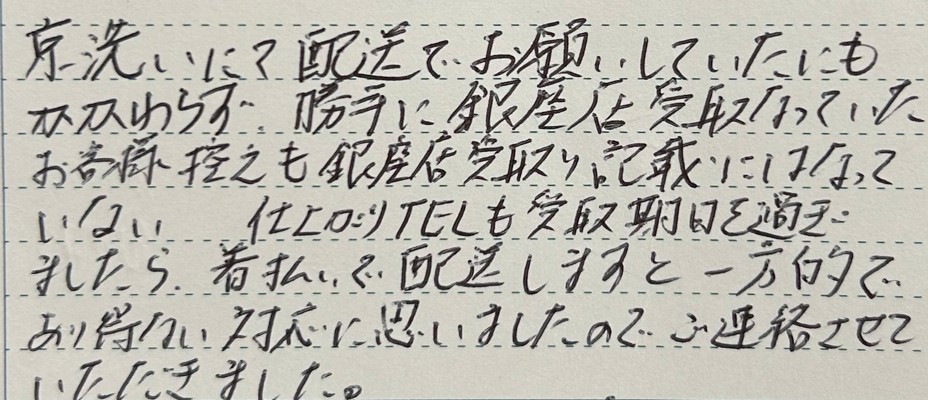 京洗いにて配送でお願いしていたにも
カカわらず、勝手に銀座店受取なっていた
お客様控えも銀座店受取り記載にはなって
いない 仕上りTELも受取期日を過ぎ
ましたら、着払いで配送しますと一方的で
あり得ない対応に思いましたのでご連絡させて
いただきました。